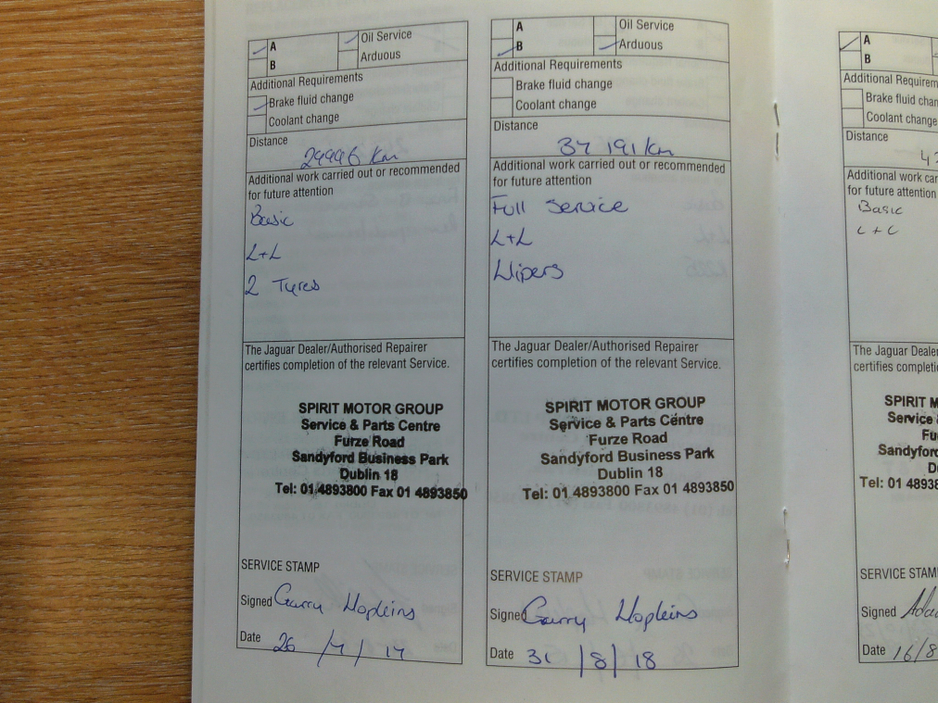 A
B
Oil Service
Arduous
Additional Requirements
Brake fluid change
Coolant change
Distance
29996 Km
Additional work carried out or recommended
for future attention
Basic
L+L
2 Tyres
The Jaguar Dealer/Authorised Repairer
certifies completion of the relevant Service.
SPIRIT MOTOR GROUP
Service & Parts Centre
Furze Road
Sandyford Business Park
Dublin 18
Tel: 01 4893800 Fax 01 4893850
SERVICE STAMP
Signed Garry Hopkins
Date 26 /7/17
A
B
Oil Service
Arduous
Additional Requirements
Brake fluid change
Coolant change
Distance
37 191 km
Additional work carried out or recommended
for future attention
Full Service
L+L
Wipers
The Jaguar Dealer/Authorised Repairer
certifies completion of the relevant Service.
SPIRIT MOTOR GROUP
Service & Parts Centre
Furze Road
Sandyford Business Park
Dublin 18
Tel: 01 4893800 Fax 01 4893850
SERVICE STAMP
Signed Garry Hopkins
Date 31 /8/18
A
B
Additional Requirem
Brake fluid chan
Coolant change
Distance
Additional work car
for future attention
Basic
The Jaguar Dealer
certifies completi
SPIRIT M
Service
Fu
Sandyford
D
Tel: 01 4893
SERVICE STAMP
Signed
Date 16/8